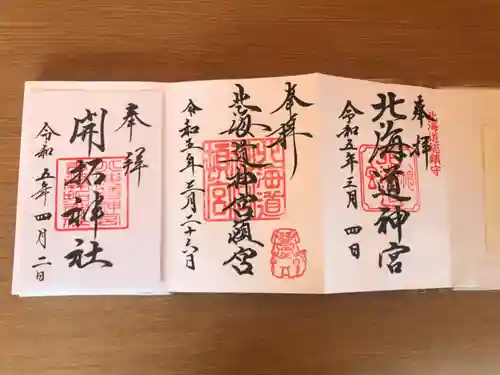 奉拝
北海道総鎮守
北海道神宮
令和五年三月四日
奉拝
北海道神宮頓宮
令和五年三月二十六日
奉拝
開拓神社
令和五年四月二日